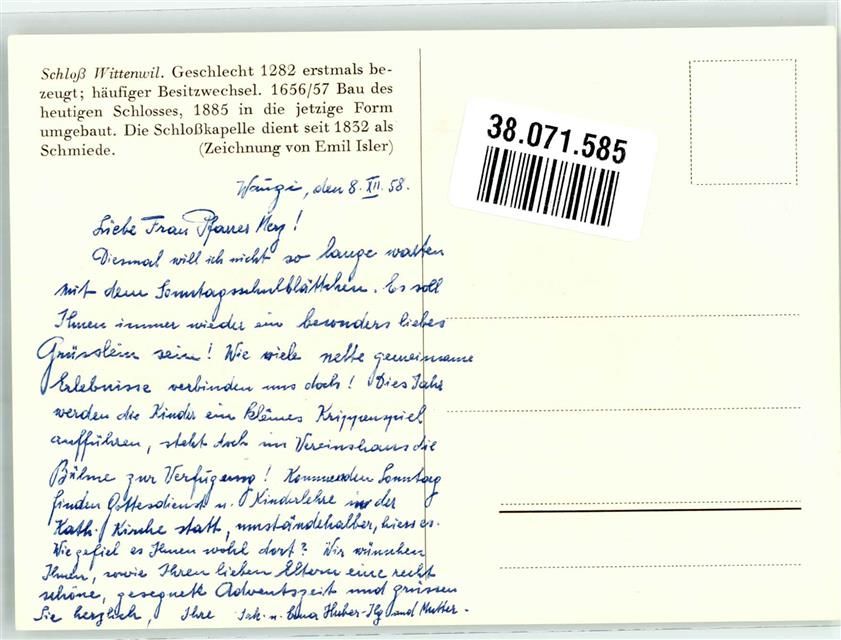 Schloß Wittenwil. Geschlecht 1282 erstmals be-
zeugt; häufiger Besitzwechsel. 1656/57 Bau des
heutigen Schlosses, 1885 in die jetzige Form
umgebaut. Die Schloßkapelle dient seit 1832 als
Schmiede. (Zeichnung von Emil Isler)
38.071.585
Wängi, den 8. XII. 58.
Liebe Frau Pfarrer Merz!
Diesmal will ich nicht so lange warten
mit dem Sonntagsschulblättchen. Es soll
Ihnen immer wieder ein besonders liebes
Grüsslein sein! Wie viele nette gemeinsame
Erlebnisse verbinden uns doch! Dies Jahr
werden die Kinder ein kleines Krippenspiel
aufführen, steht doch im Vereinshaus die
Bühne zur Verfügung! Kommenden Sonntag
finden Gottesdienst u. Kinderlehre in der
Kath. Kirche statt, umständehalber, hiess es.
Wie gefiel es Ihnen wohl dort? Wir wünschen
Ihnen, sowie Ihren lieben Eltern eine recht
schöne, gesegnete Adventszeit und grüssen
Sie herzlich, Ihre Jak. u. Huber-Ilg und Mutter.